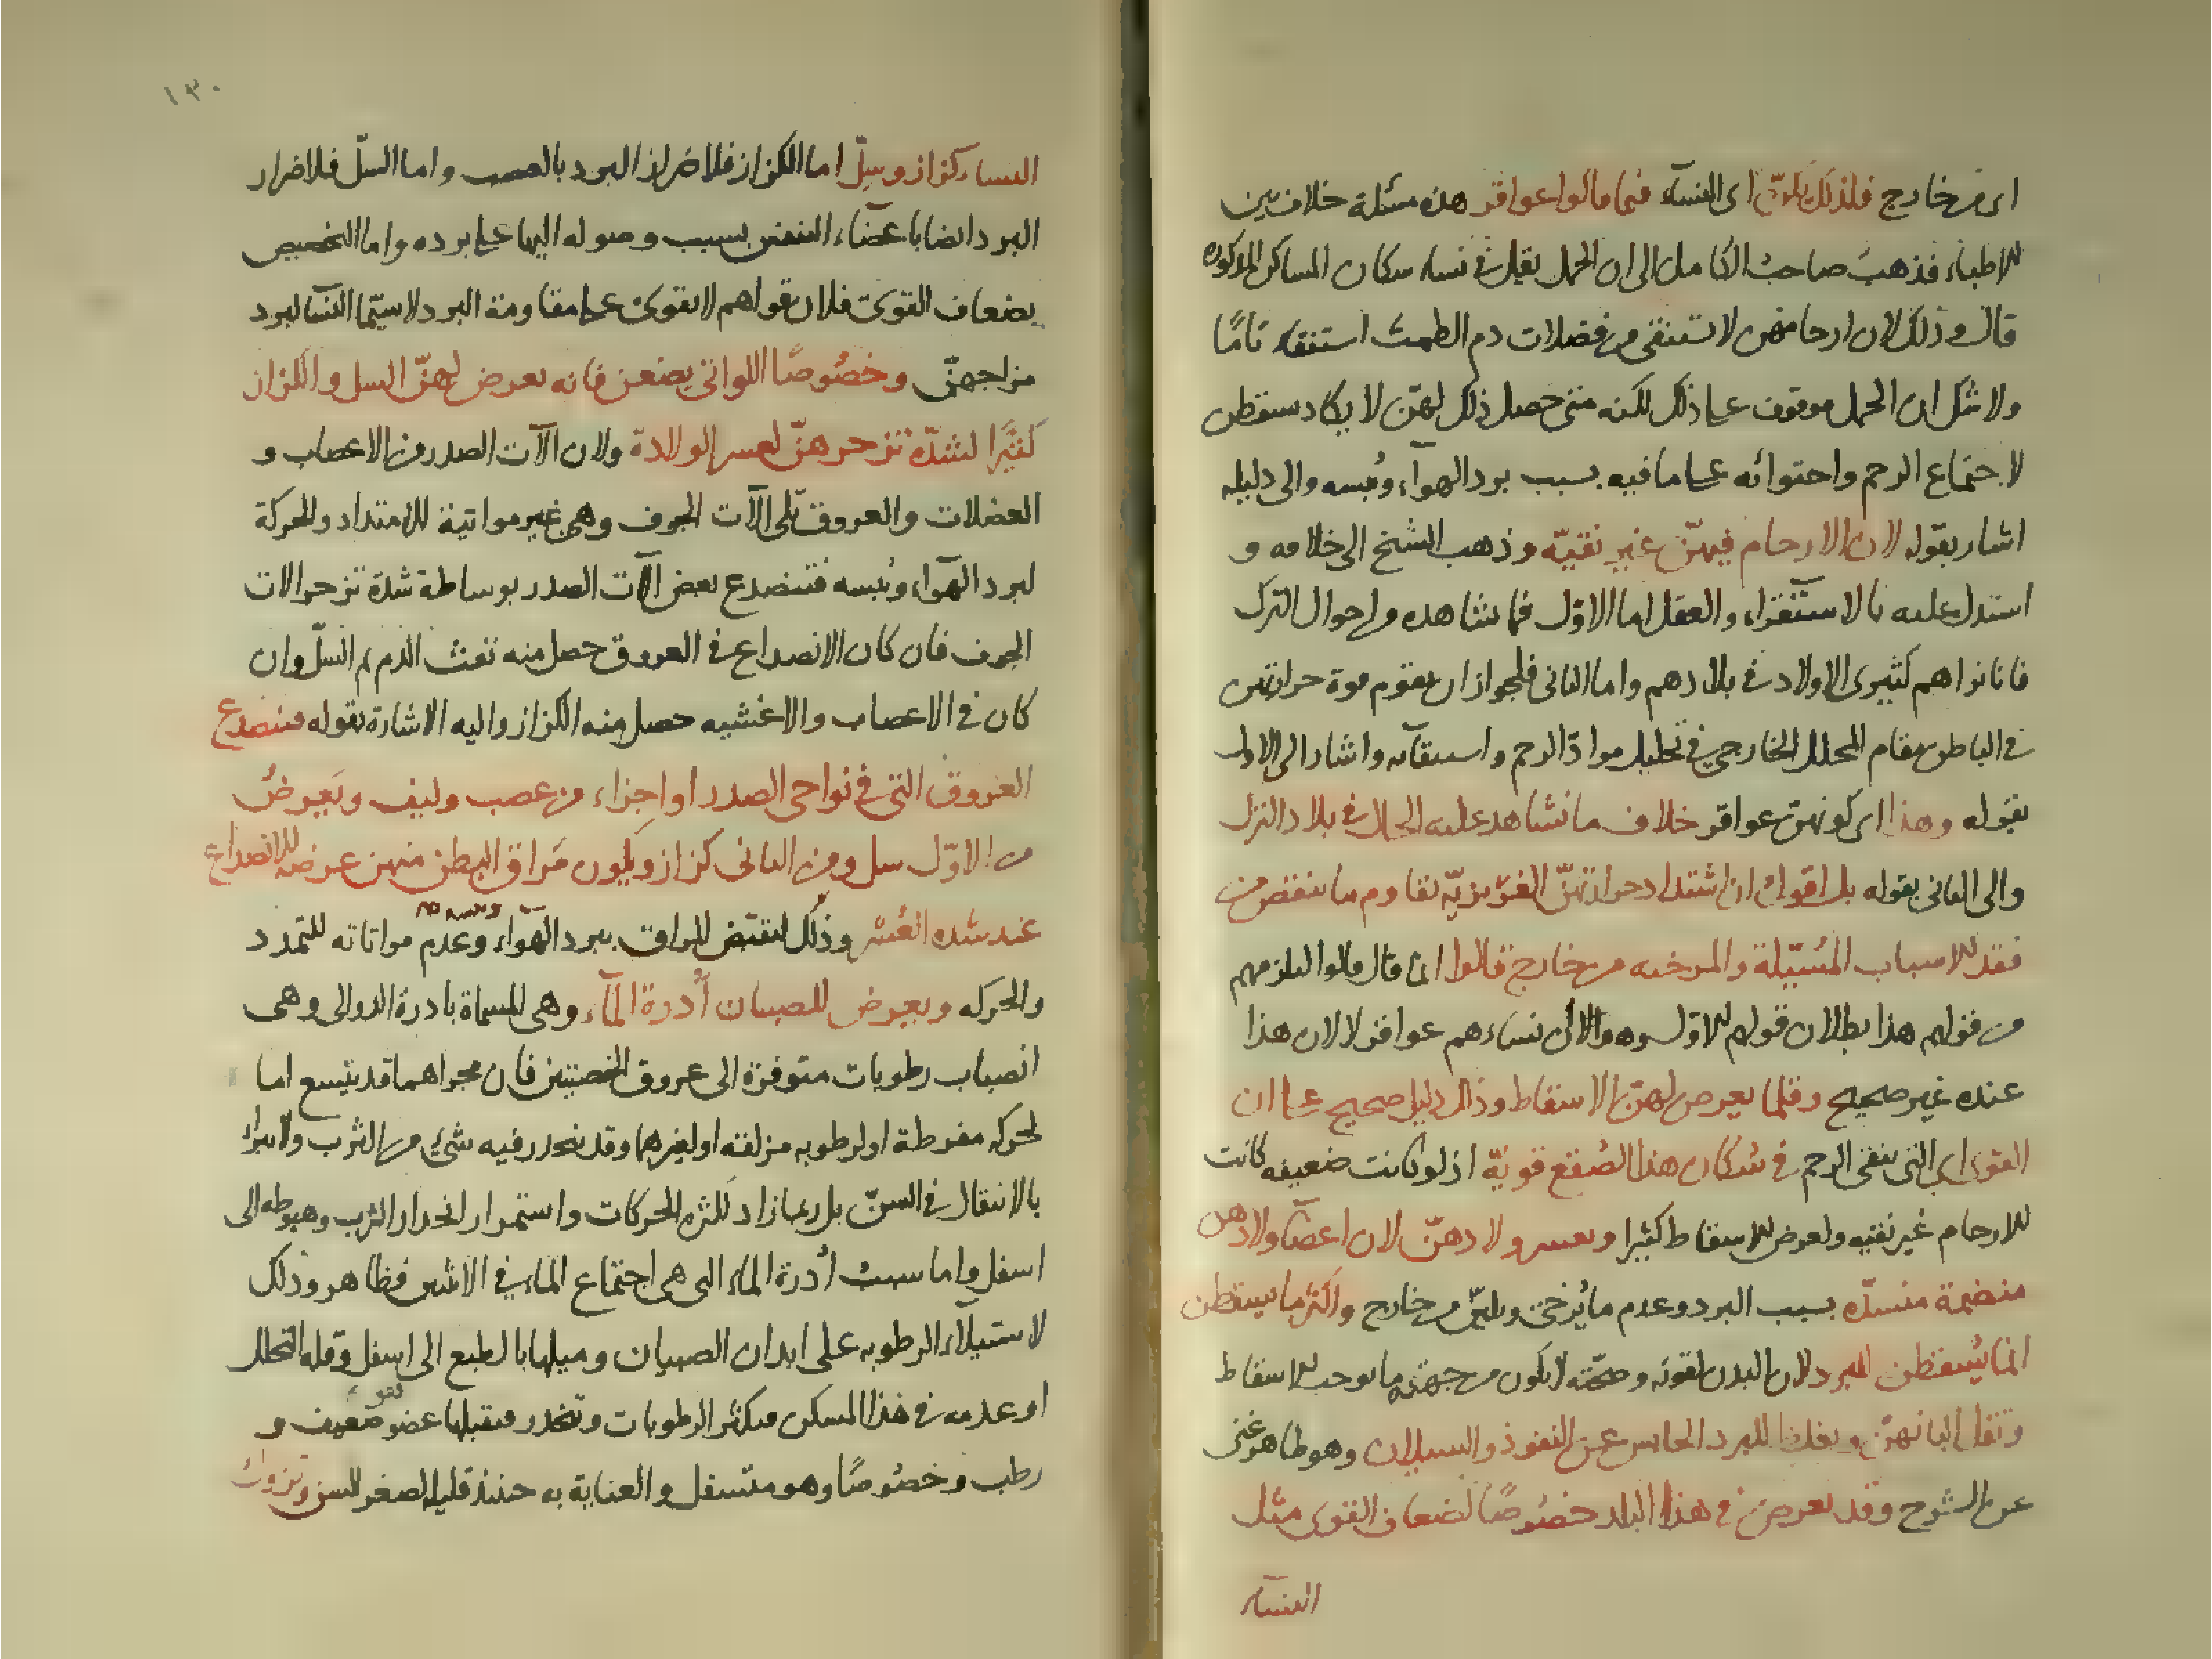 اى من خارج فلذلك يكون اى النساء فيما قالوا عواقر هذه مسئلة خلاف بين
الاطباء فذهب صاحب الكامل الى ان الحمل يقل فى نساء سكان المساكن المذكوره
قال وذلك لان ارحامهن لا تستنقى من فضلات دم الطمث استنقاء تامًا
ولا شك ان الحمل موقوف على ذلك لكنه متى حصل ذلك لهن لا يكاد يسقطن
لاجتماع الرحم واحتوائه على ما فيه بسبب برد الهوآء ويُبسه والى دليله
اشار بقوله لان الارحام فيهنّ غير نقيّه وذهب الشيخ الى خلافه و
استدل عليه بالاستقراء والعقل اما الاوّل فما شاهده من احوال الترك
فانا نراهم كثيرى الاولاد فى بلادهم واما الثانى فلجواز ان يقوم قوة حرارتهن
فى الباطن مقام المحلل الخارجى فى تحليل موادّ الرحم واستنقآئه واشار الى الاول
بقوله وهذا اى كونهن عواقر خلاف ما نشاهد عليه الحال فى بلاد الترك
والى الثانى بقوله بل اقول ان اشتداد حرارتهنّ الغريزيّه تقاوم ما ينقص من
فقد الاسباب المُسَيّلة والمرخيه من خارج قالوا انما قال قالوا ليلزمهم
من قولهم هذا بطلان قولهم الاول وهو ان نساءهم عواقر لا لان هذا
عنده غير صحيح وقلما يعرض لهن الاسقاط وذلك دليل صحيح على ان
القوى اى التى تنقى الرحم فى سُكان هذا الصُقع قويّه اذ لو كانت ضعيفه كانت
الارحام غير نقيه ولعرض الاسقاط كثيرا ويعسر ولادهنّ لان اعضآء ولادهن
منضمة منسدّه بسبب البرد وعدم ما يُرخى ويلين من خارج واكثر ما يسقطن
انما يُسقطن للبرد لان البدن لقوته وصحّته لا يكون من جهته ما يوجب الاسقاط
وتقل البانهنّ ويغلظ للبرد الحابس عن النفوذ والسيلان وهو ظاهر غنى
عن الشرح وقد يعرض فى هذا البلد خصُوصًا لضعاف القوى مثل
النسآء
١٣٠
النساء كزاز وسلّ اما الكزاز فلاضرار البرد بالعصب واما السلّ فلاضرار
البرد ايضا باعضآء التنفس بسبب وصوله اليها على برده واما التخصيص
بضعاف القوى فلان قواهم لا تقوى على مقاومة البرد لا سيّما النسآء لبرد
مزاجهنّ وخصُوصًا اللواتى يضعن فانه يعرض لهنّ السل والكزاز
كثيرًا لشدّة تزحرهنّ لعسر الولادة ولان الآت الصدر من الاعصاب و
العضلات والعروق تلى الآت الجوف وهى غير مواتية للامتداد والحركة
لبرد الهوآء ويُبسه فتنصدع بعض الآت الصدر بوساطة شدة تزحر الات
الجوف فان كان الانصداع فى العروق حصل منه نفث الدم ثم السلّ وان
كان فى الاعصاب والاغشيه حصل منه الكزاز واليه الاشارة بقوله فتنصدع
العروق التى فى نواحى الصدر او اجزاء من عصب وليف ويَعرضُ
من الاوّل سل ومن الثانى كزاز ويكون مَراق البطن منهن عرضه للانصداع
عند شده العُسْر وذلك لتقبّض المراق ببرد الهوآء ويبسه وعدم مواتاته للتمدد
والحركه ويعرض للصبيان أُدرة المآء وهى المسماة بادرة الدوالى وهى
انصباب رطوبات متوفرة الى عروق الخصيتين فان مجراهما قد يتسع اما
لحركه مفرطة او لرطوبه مزلقه او لغيرهما وقد ينحدر فيه شئ من الثرب ولا تبرأ
بالانتقال فى السنّ بل ربما زاد لكثره الحركات واستمرار انحدار الثرب وهبوطه الى
اسفل واما سبب أدرة الماء التى هى اجتماع الماء فى الانثيين فظاهر وذلك
لاستيلآء الرطوبه على ابدان الصبيان وميلها بالطبع الى اسفل وقله التحلل
او عدمه فى هذا المسكن فيكثر الرطوبات وتنحدر فيقبلها عضو ضعيف و
رطب وخصُوصًا وهو متسفل والعناية به حينئذ قليله لصغر السن وتزول